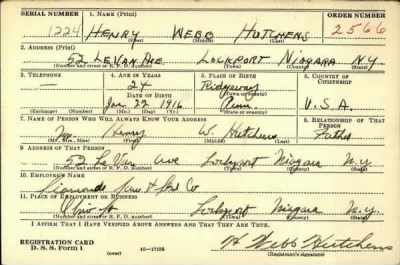 SERIAL NUMBER 1. NAME (Print) ORDER NUMBER
1224 HENRY WEBB HUTCHENS 2566
(First) (Middle) (Last)
2. ADDRESS (Print)
52 LE VAN AVE. LOCKPORT NIAGARA N.Y.
(Number and street or R. F. D. number) (Town) (County) (State)
3. TELEPHONE 4. AGE IN YEARS 5. PLACE OF BIRTH 6. COUNTRY OF CITIZENSHIP
24 Ridgway
DATE OF BIRTH (Town or county)
Jan. 22 1916 Penn. U.S.A.
(Exchange) (Number) (Mo.) (Day) (Yr.) (State or country)
7. NAME OF PERSON WHO WILL ALWAYS KNOW YOUR ADDRESS 8. RELATIONSHIP OF THAT PERSON
Mr. Henry W. Hutchens Father
(Mr., Mrs., Miss) (First) (Middle) (Last)
9. ADDRESS OF THAT PERSON
52 Le Van Ave Lockport Niagara N.Y.
(Number and street or R. F. D. number) (Town) (County) (State)
10. EMPLOYER'S NAME
Simonds Saw & Stl Co
11. PLACE OF EMPLOYMENT OR BUSINESS
Ohio St Lockport Niagara N.Y.
(Number and street or R. F. D. number) (Town) (County) (State)
I AFFIRM THAT I HAVE VERIFIED ABOVE ANSWERS AND THAT THEY ARE TRUE.
REGISTRATION CARD
D. S. S. Form 1 (over) 16—17105 H Webb Hutchens
(Registrant's signature)